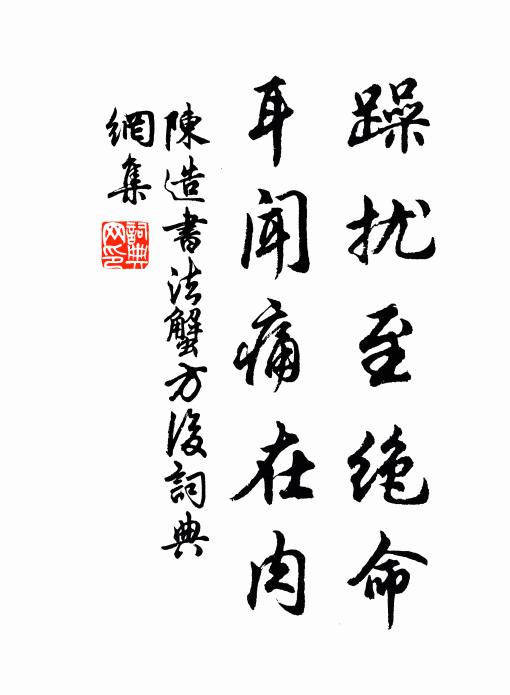 躁扰至绝命
耳闻痛在肉
陳造書法蟹方後詞典
網集
詞典
网印